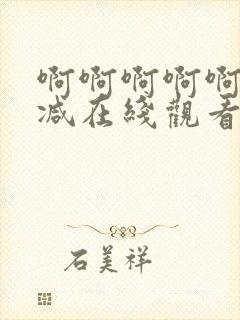 啊啊啊啊啊
减在綫觀看
石美祥